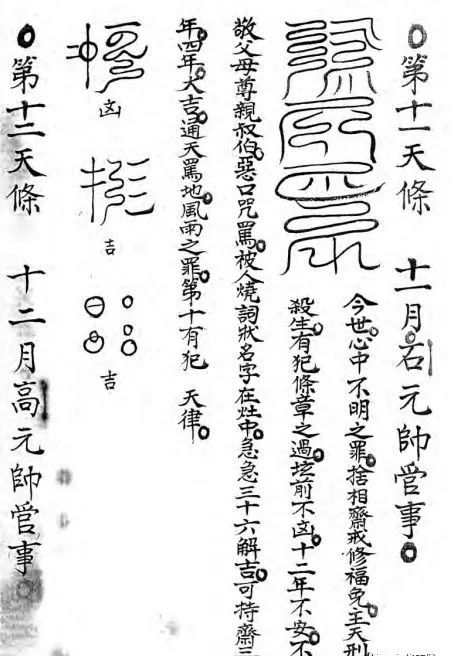 ○第十一天條 十一月石元帥管事○
今世。心中不明之罪。捨相齋戒修福免。主天刑
殺生。有犯條章之過。坟前不凶。十二年不安。不
敬父母尊親叔伯。惡口咒罵。被人燒詞狀名字在灶中。急急三十六解吉。可持齋三
年。四年。大吉。通天罵地。風雨之罪。第十有犯 天律。
凶
吉
吉
○第十二天條 十二月高元帥管事○